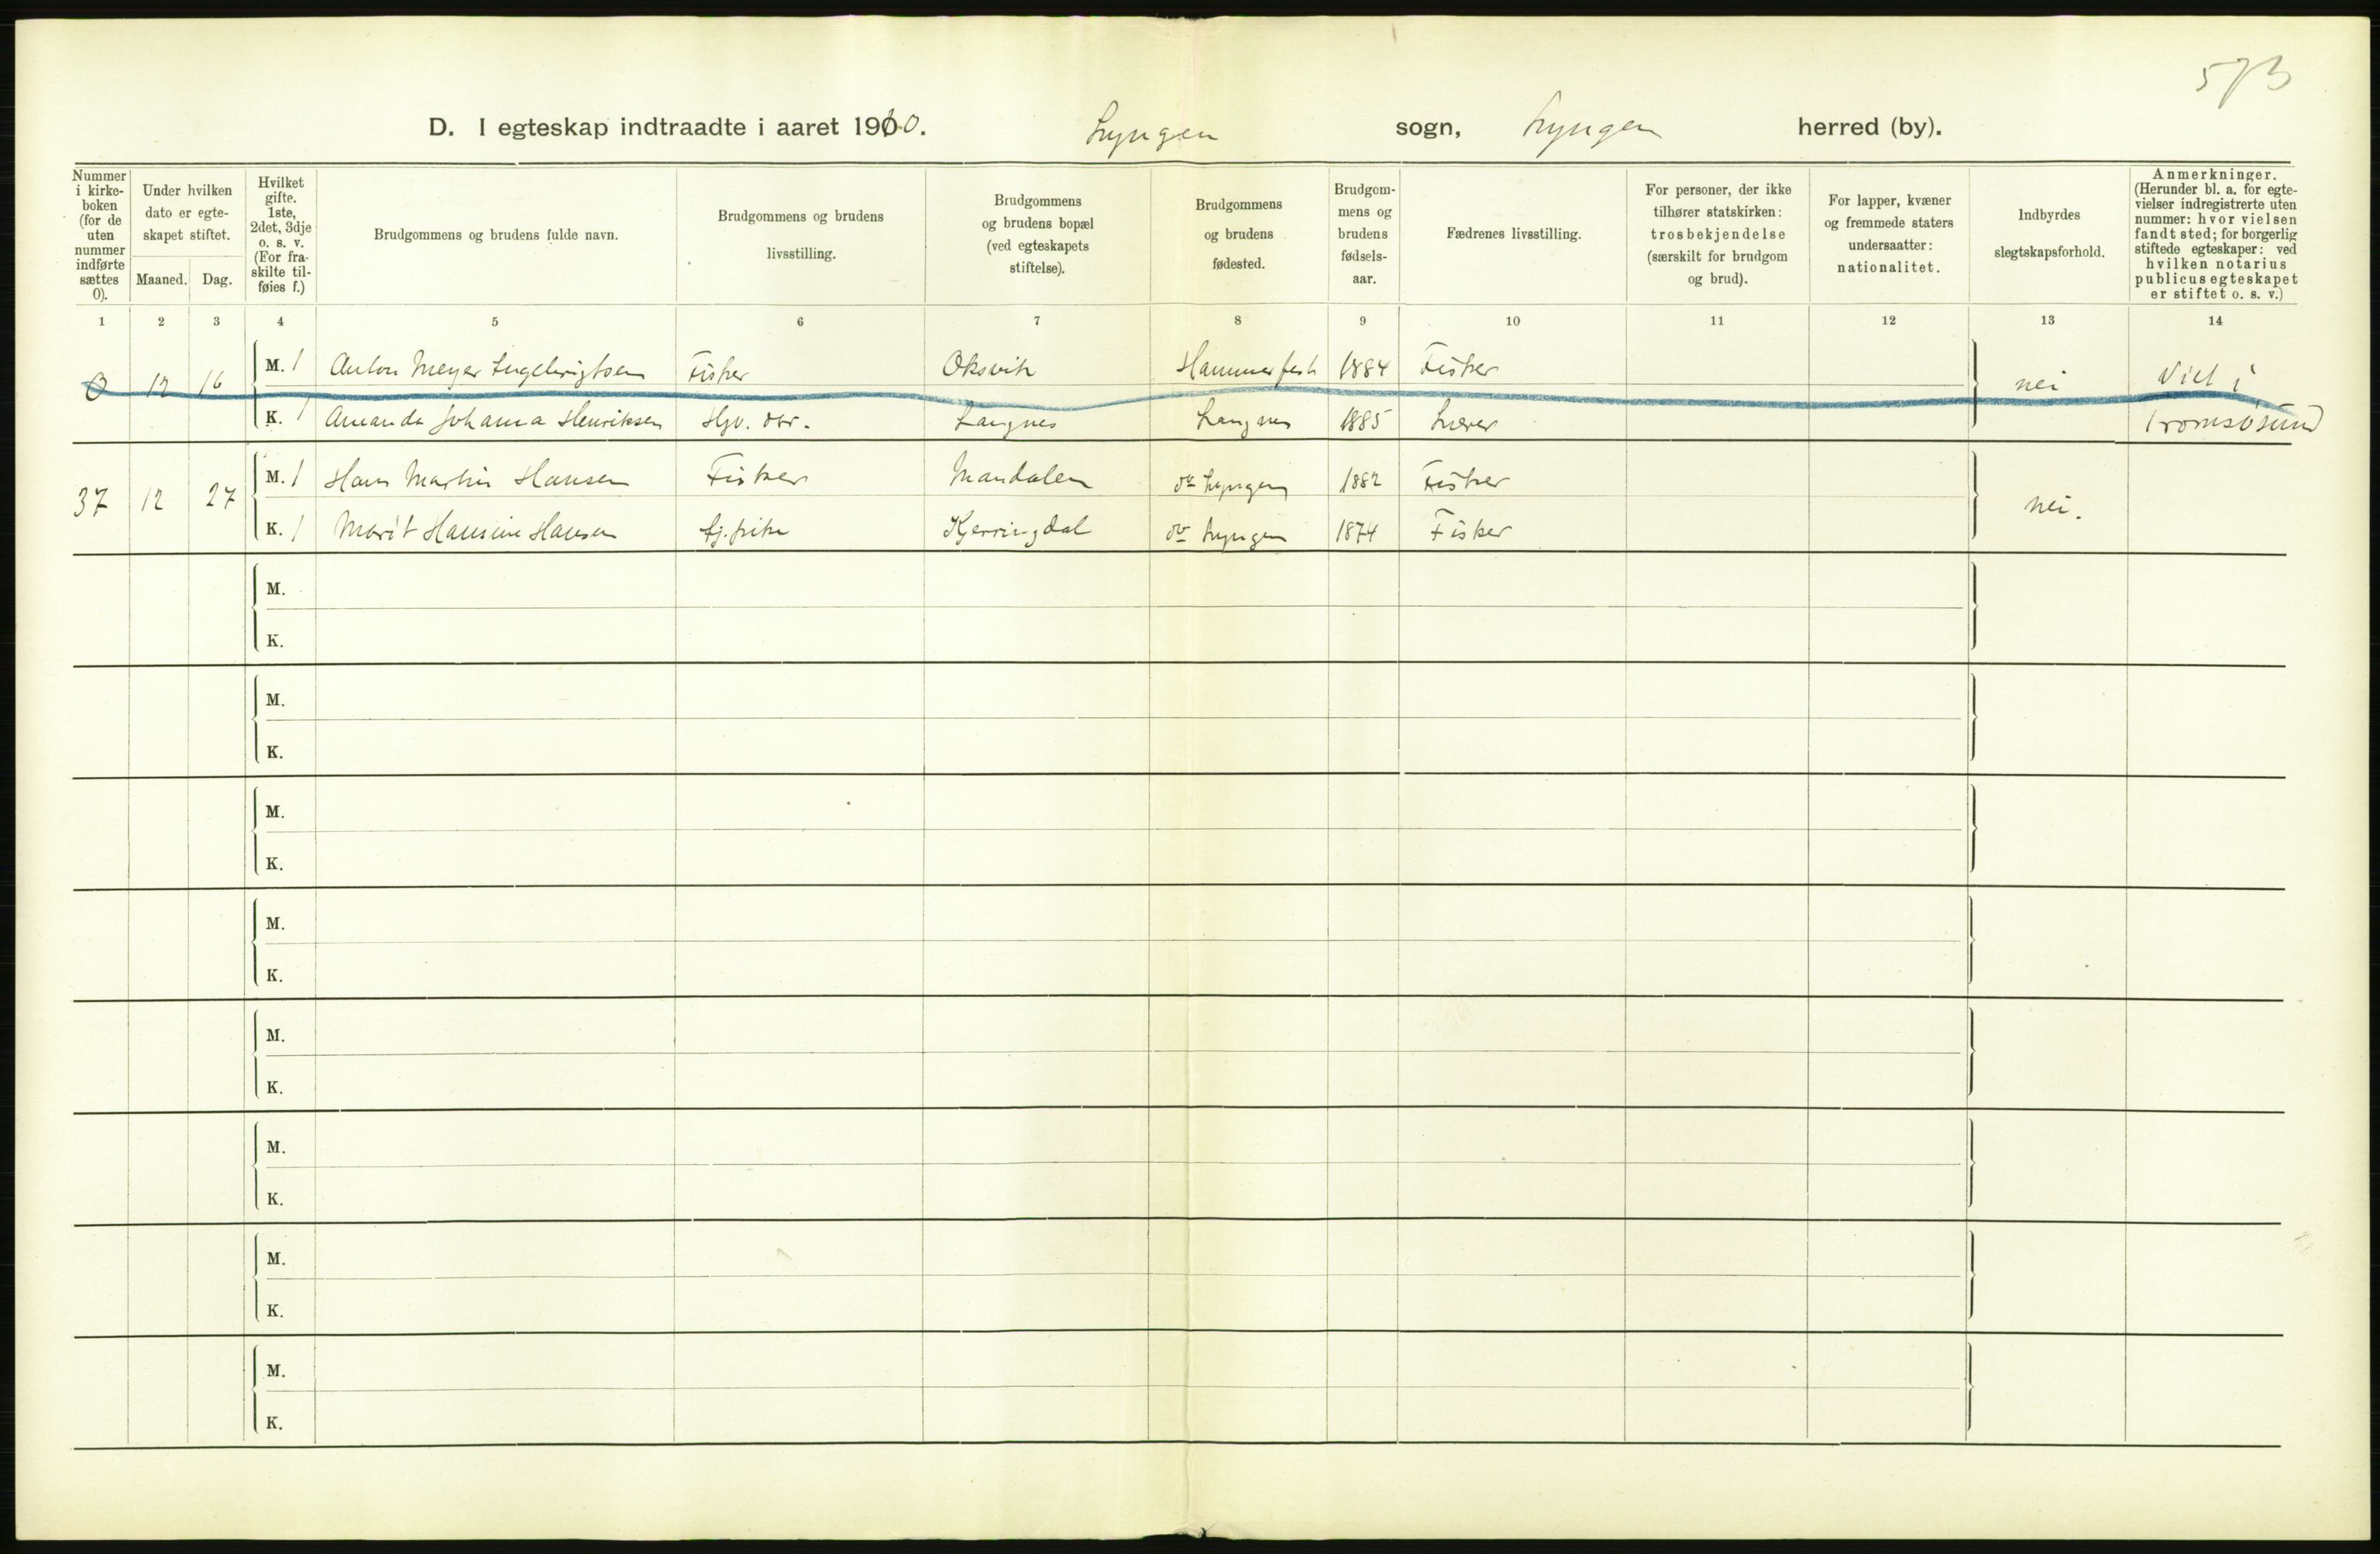 573
D. I egteskap indtraadte i aaret 1910. Lyngen sogn, Lyngen herred (by).
Nummer i kirke-boken (for de uten nummer indførte sættes 0).
Under hvilken dato er egte-skapet stiftet.
Maaned. Dag.
Hvilket gifte. 1ste, 2det, 3dje o. s. v. (For fra-skilte til-føies f.)
Brudgommens og brudens fulde navn.
Brudgommens og brudens livsstilling.
Brudgommens og brudens bopæl (ved egteskapets stiftelse).
Brudgommens og brudens fødested.
Brudgom-mens og brudens fødsels-aar.
Fædrenes livsstilling.
For personer, der ikke tilhører statskirken: trosbekjendelse (særskilt for brudgom og brud).
For lapper, kvæner og fremmede staters undersaatter: nationalitet.
Indbyrdes slegtskapsforhold.
Anmerkninger. (Herunder bl. a. for egte-vielser indregistrerte uten nummer: hvor vielsen fandt sted; for borgerlig stiftede egteskaper: ved hvilken notarius publicus egteskapet er stiftet o. s. v.)
1 2 3 4 5 6 7 8 9 10 11 12 13 14
0 12 16 M. 1 Anton Meyer Ingebrigtsen Fisker Oksvik Hammerfest 1884 Fisker nei Viet i
K. 1 Amanda Johanna Henriksen Hjv. dtr. Langnes Langnes 1885 Lærer Tromsøsund
37 12 27 M. 1 Hans Martin Hansen Fisker Mandalen Lyngen 1882 Fisker nei.
K. 1 Marit Hansine Hansen Kjerringdal Lyngen 1874 Fisker
M.
K.
M.
K.
M.
K.
M.
K.
M.
K.
M.
K.
M.
K.
M.
K.